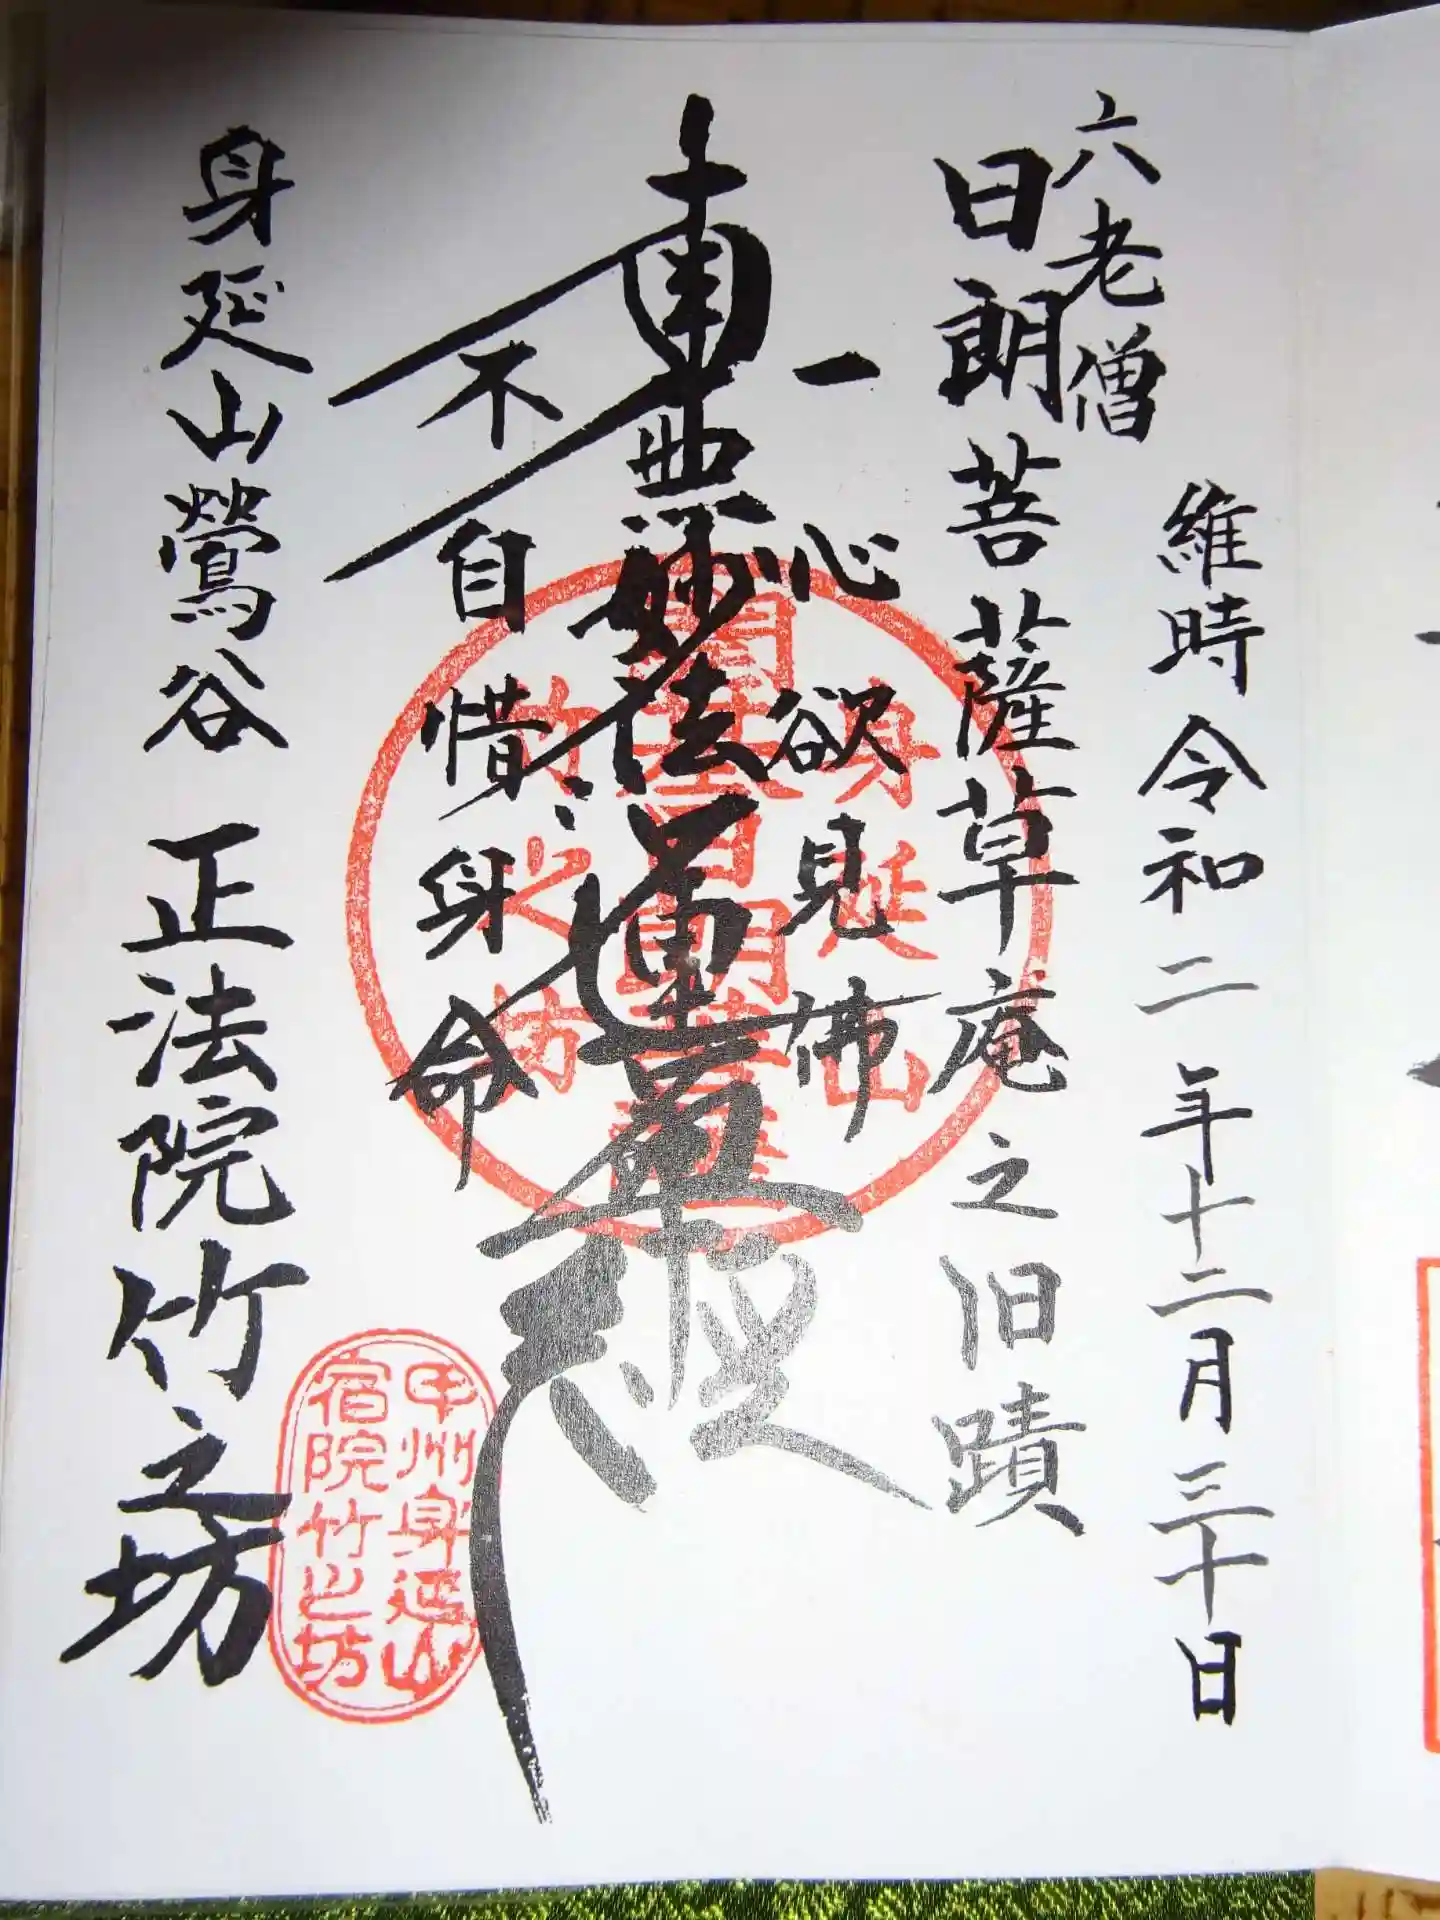 維時令和二年十二月三十日
六老僧
日朗菩薩草庵之旧蹟
一心欲見佛
南無妙法蓮華経
不自惜身命
身延山鶯谷 正法院竹之坊
身延山
開基日朗菩薩
竹之坊
甲州身延山
宿院竹之坊